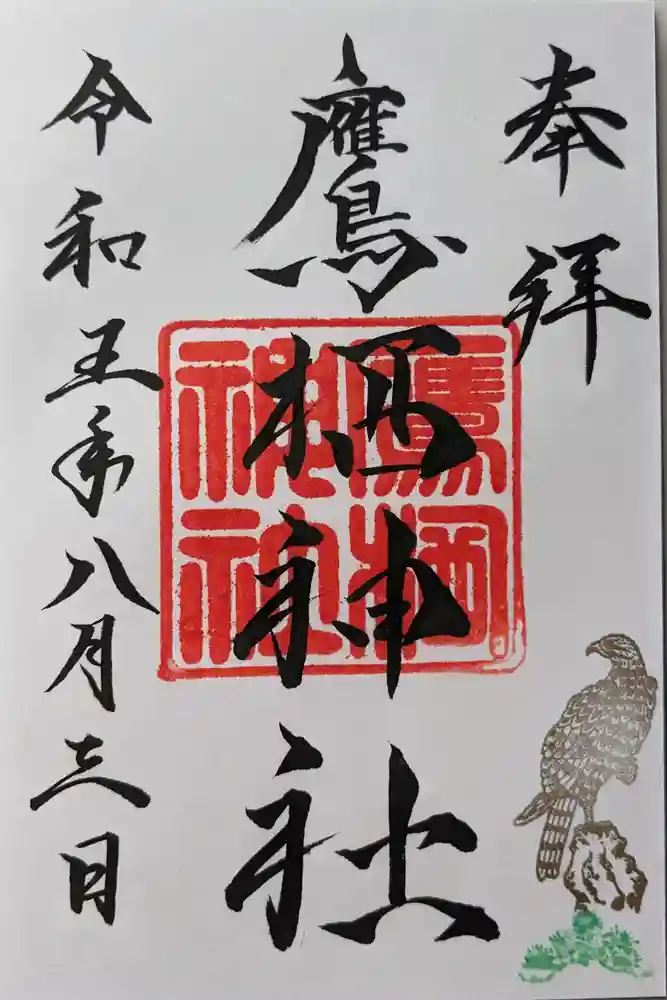 奉拝
鷹栖神社
鷹栖
神社
令和五年八月三日